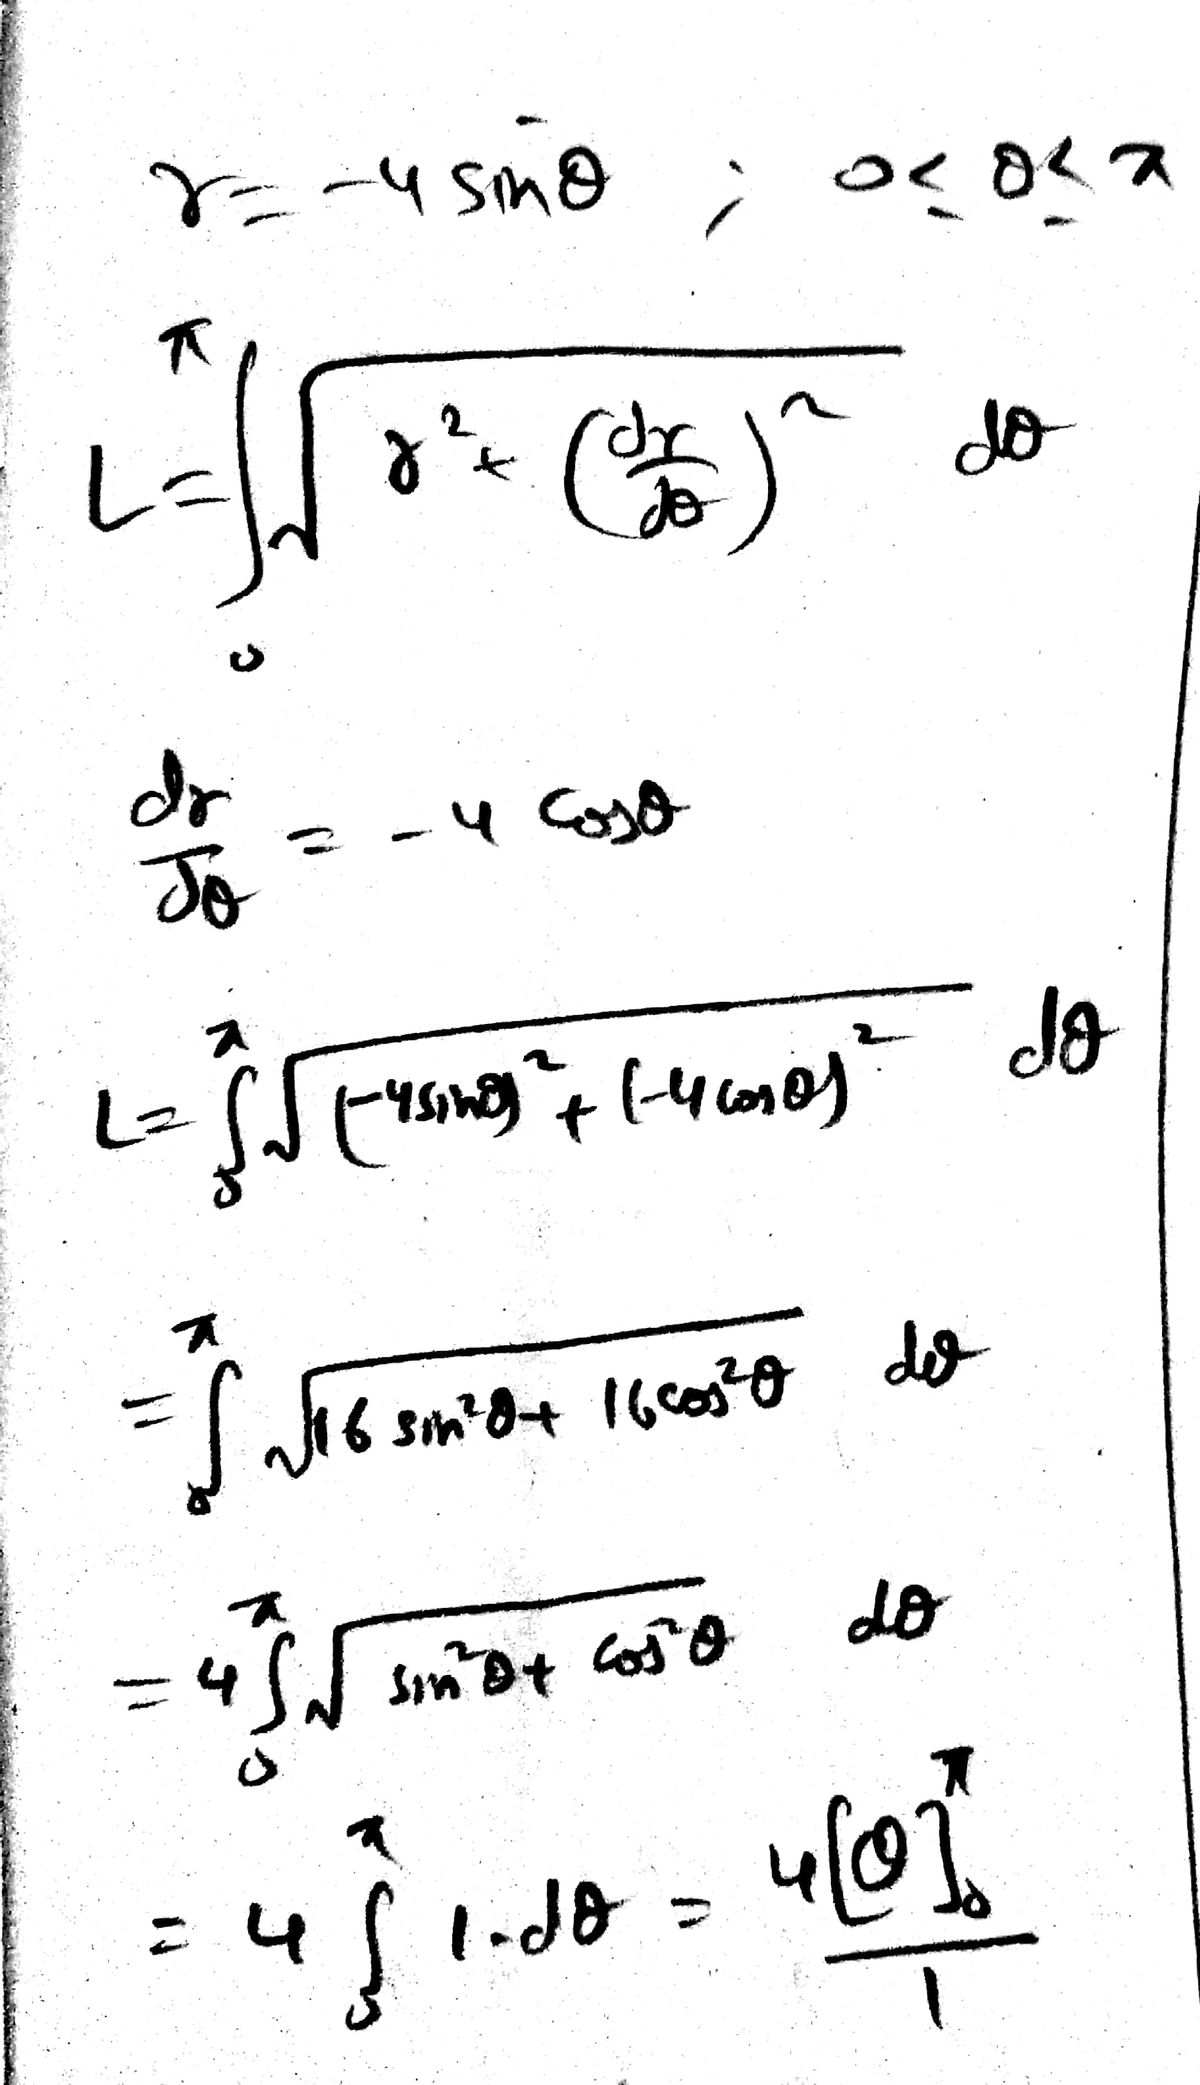 r = -4 sinθ ; 0 ≤ θ ≤ π
L = ∫₀^π √(r² + (dr/dθ)²) dθ
dr/dθ = -4 cosθ
L = ∫₀^π √((-4sinθ)² + (-4cosθ)²) dθ
= ∫₀^π √(16 sin²θ + 16 cos²θ) dθ
= 4 ∫₀^π √(sin²θ + cos²θ) dθ
= 4 ∫₀^π 1.dθ = 4[θ]₀^π / 1